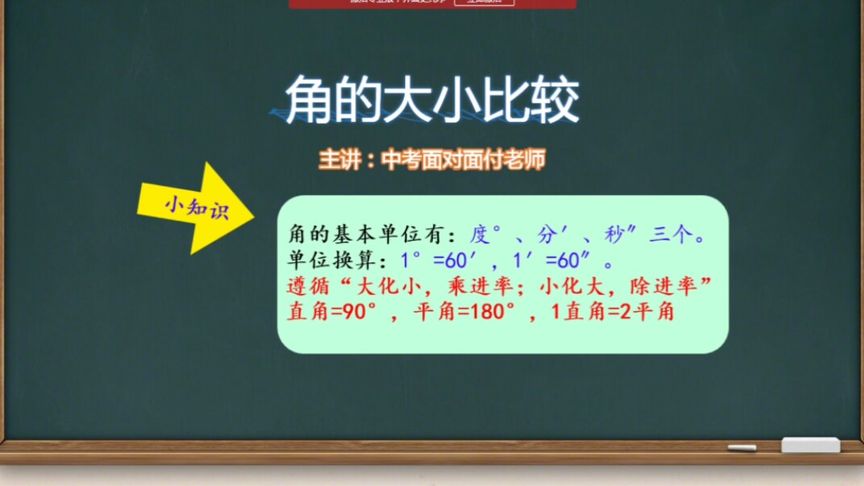 角的大小比较
主讲：中考面对面付老师
小知识
角的基本单位有：度°、分′、秒″三个。
单位换算：1°=60′，1′=60″。
遵循“大化小，乘进率；小化大，除进率”
直角=90°，平角=180°，1直角=2平角